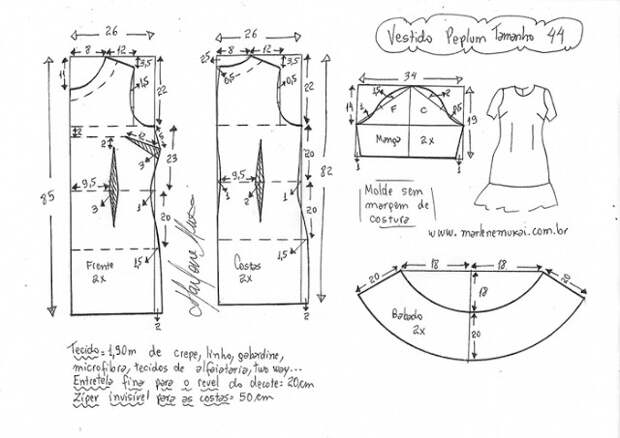 Vestido Peplum Tamanho 44
26
8
12
3,5
11
1,5
22
2
2
2
3
23
9,5
3
1
20
85
1,5
Frente
2x
2
26
8
12
3,5
2,5
0,5
0,5
22
20
82
1
9,5
3
1
20
1,5
Costas
2x
2
34
1,5
2
14
F
C
0,5
19
1
Manga
2x
1
1
Molde sem
margem de
costura
www.marlenemukai.com.br
20
18
18
20
18
20
Babado
2x
Tecido= 1,90m de crepe, linho, gabardine,
microfibra, tecidos de alfaiataria, two way...
Entretela fina para o revel do decote= 20cm
Zíper invisível para as costas= 50cm